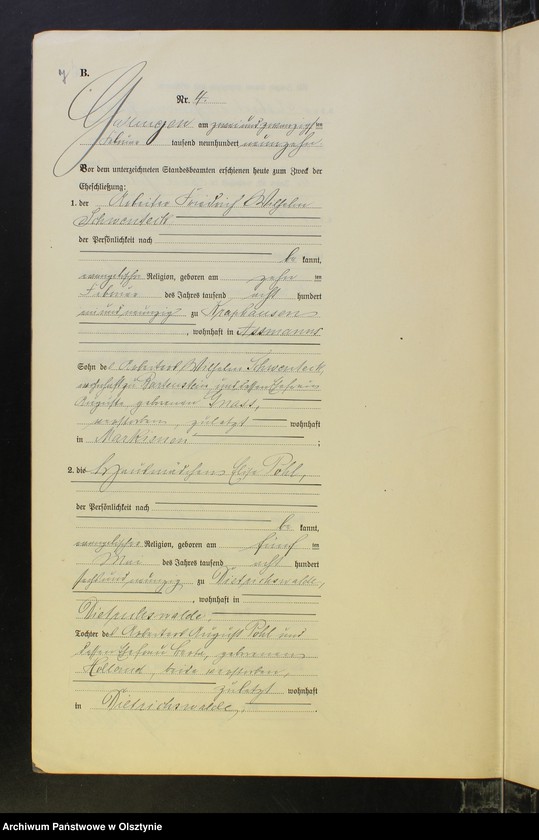 B.
Nr. 4.
Gallingen am zwei und zwanzigsten
Februar tausend neunhundert neunzehn.
Vor dem unterzeichneten Standesbeamten erschienen heute zum Zweck der
Eheschließung:
1. der Arbeiter Friedrich Wilhelm
Schwenteck
der Persönlichkeit nach
be kannt,
evangelischer Religion, geboren am zehn ten
Februar des Jahres tausend acht hundert
ein und neunzig zu Kraphausen
, wohnhaft in Assmanns
Sohn des Arbeiters Wilhelm Schwenteck,
wohnhaft zu Bartenstein, und dessen Ehefrau
Auguste, geborenen
verstorben, zuletzt wohnhaft
in Markienen ;
2. die Hausmädchen Else Pohl,
der Persönlichkeit nach
be kannt,
evangelischer Religion, geboren am fünf ten
Mai des Jahres tausend acht hundert
sechs und neunzig zu Dietrichswalde,
, wohnhaft in
Dietrichswalde,
Tochter des Arbeiters August Pohl und
dessen Ehefrau Berta, geborenen
Holland, beide verstorben,
zuletzt wohnhaft
in Dietrichswalde, .
Archiwum Państwowe w Olsztynie